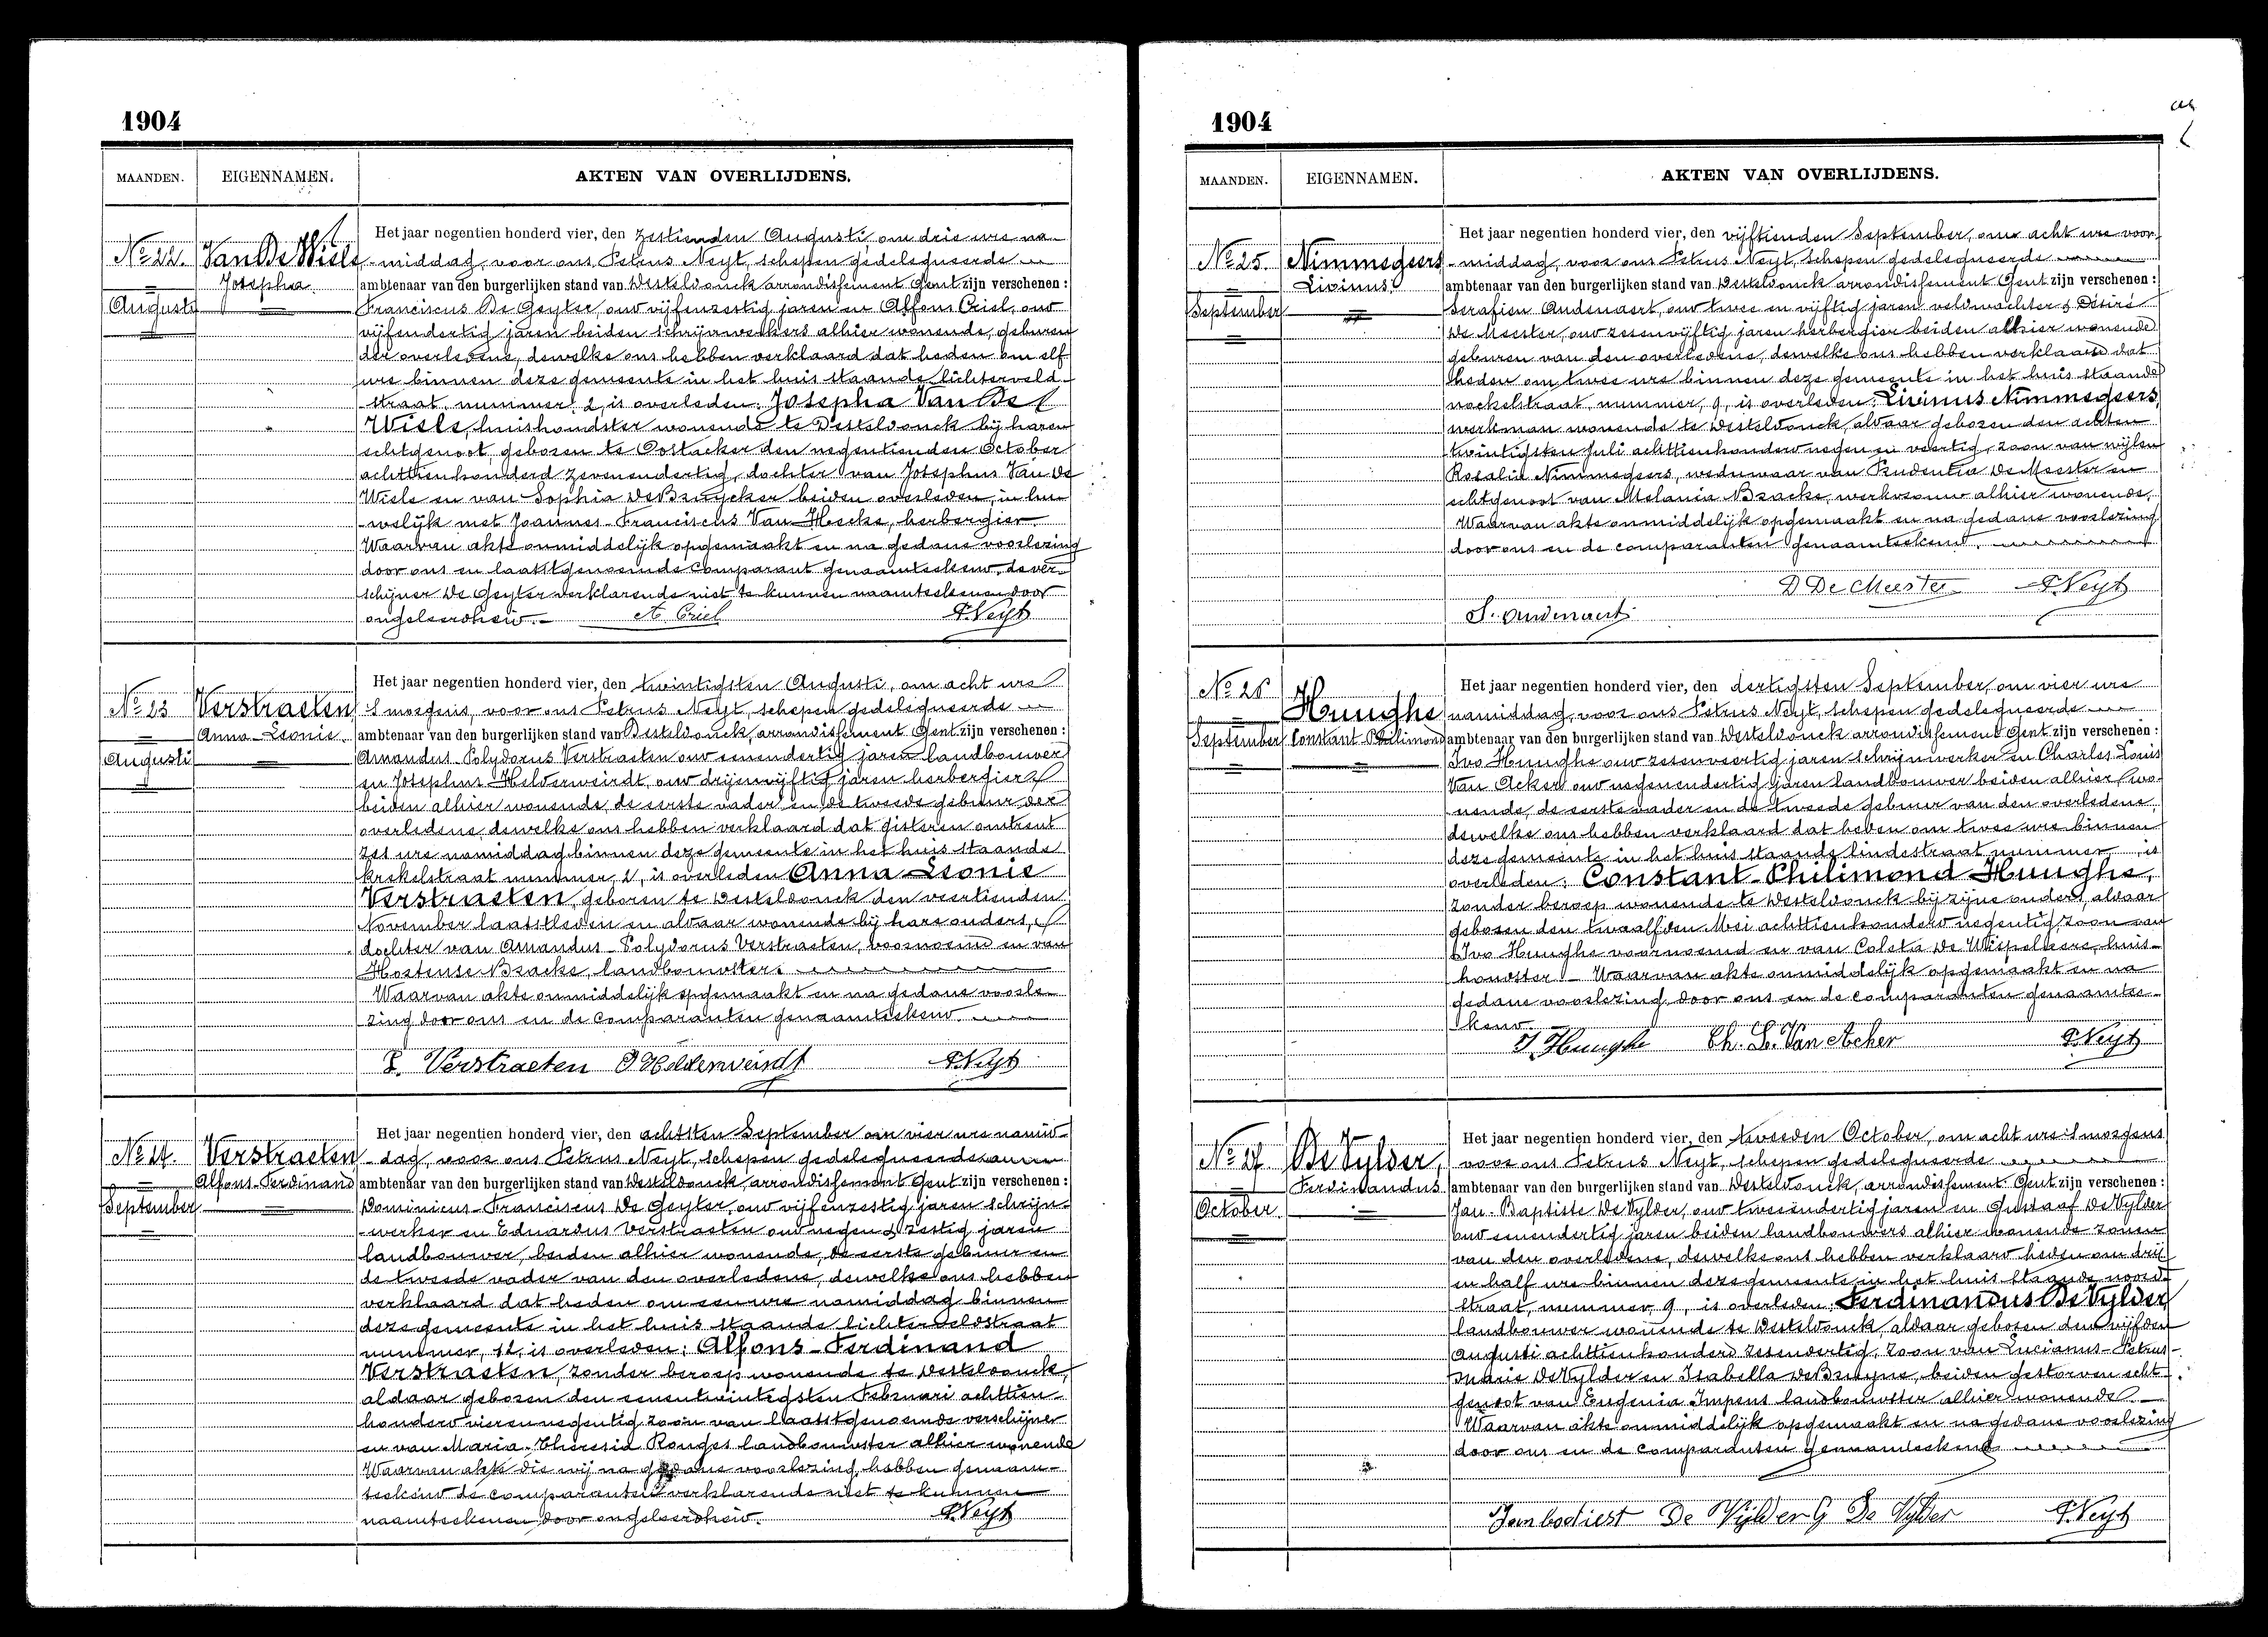 1904
MAANDEN. EIGENNAMEN. AKTEN VAN OVERLIJDENS.
Nº 22. Van De Wiele
Josepha
Augusti
Het jaar negentien honderd vier, den zestienden Augusti, om drie ure na-
-middag, voor ons Petrus Neyt, schepen gedelegueerde
ambtenaar van den burgerlijken stand van Desteldonck arrondissement Gent zijn verschenen :
Franciscus De Geyter, oud vijfenzestig jaren en Alfons Criel, oud
vijfendertig jaren beiden schrijnwerkers alhier wonende, geburen
der overledene, dewelke ons hebben verklaard dat heden om elf
ure binnen deze gemeente in het huis staande lichterveld-
straat nummer 2, is overleden: Josepha Van De
Wiele, huishoudster wonende te Desteldonck bij haren
echtgenoot, geboren te Oostacker den negentienden October
achttienhonderd zevenendertig, dochter van Josephus Van De
Wiele en van Sophia DeBruycker beiden overleden, in hu-
-welijk met Joannes-Franciscus Van Hecke, herbergier.
Waarvan akte onmiddelijk opgemaakt en na gedane voorlezing
door ons en laatstgenoemde comparant genaamteekend, de ver-
schijner De Geyter verklarende niet te kunnen naamteekenen door
ongeleerdheid.- A. Criel P. Neyt
Nº 23 Verstraeten
Anna-Leonie.
Augusti
Het jaar negentien honderd vier, den twintigsten Augusti, om acht ure
's morgens, voor ons Petrus Neyt, schepen gedelegueerde
ambtenaar van den burgerlijken stand van Desteldonck, arrondissement Gent zijn verschenen :
Amandus-Polydorus Verstraeten oud eenendertig jaren landbouwer
en Josephus Helderweirdt, oud drijenvijftig jaren herbergier
beiden alhier wonende, de eerste vader en de tweede gebuur der
overledene, dewelke ons hebben verklaard dat gisteren omtrent
zes ure namiddag binnen deze gemeente in het huis staande
krekelstraat nummer, 1, is overleden Anna Leonie
Verstraeten, geboren te Desteldonck den veertienden
November laatstleden en aldaar wonende bij hare ouders,
dochter van Amandus-Polydorus Verstraeten, voornoemd en van
Hortense Braeke, landbouwster.
Waarvan akte onmiddelijk opgemaakt en na gedane voorle-
zing door ons en de comparanten genaamteekend.
P. Verstraeten J Helderweirdt P. Neyt
Nº 24. Verstraeten
Alfons-Ferdinand
September
Het jaar negentien honderd vier, den achtsten September om vier ure namid-
-dag, voor ons Petrus Neyt, schepen gedelegueerde
ambtenaar van den burgerlijken stand van Desteldonck, arrondissement Gent zijn verschenen :
Dominicus-Franciscus De Geyter, oud vijfenzestig jaren schrijn-
-werker en Eduardus Verstraeten oud negen & zestig jaren
landbouwer, beiden alhier wonende, de eerste gebuur en
de tweede vader van den overledene, dewelke ons hebben
verklaard dat heden om een ure namiddag binnen
deze gemeente in het huis staande lichterveldstraat
nummer, 12, is overleden: Alfons-Ferdinand
Verstraeten, zonder beroep wonende te Desteldonck,
aldaar geboren den eenentwintigsten Februari achttien-
honderd vierennegentig zoon van laatstgenoemde verschijner
en van Maria-Theresia Ronges landbouwster alhier wonende
Waarvan akte die wij na gedane voorlezing, hebben genaam-
teekend de comparanten verklarende niet te kunnen
naamteekenen door ongeleerdheid. P. Neyt
1904
MAANDEN. EIGENNAMEN. AKTEN VAN OVERLIJDENS.
Nº 25 Nimmegeers
Livinus
September
Het jaar negentien honderd vier, den vijftienden September, om acht ure voor-
-middag, voor ons Petrus Neyt, schepen gedelegueerde
ambtenaar van den burgerlijken stand van Desteldonck arrondissement Gent zijn verschenen :
Serafien Oudenaert, oud twee en vijftig jaren veldwachter & Désiré
De Meester, oud zesenvijftig jaren herbergier beiden alhier wonende
geburen van den overledene, dewelke ons hebben verklaard dat
heden om twee ure binnen deze gemeente in het huis staande
nockelstraat, nummer, 9, is overleden: Livinus Nimmegeers,
werkman wonende te Desteldonck, aldaar geboren den achten
twintigsten Juli achttienhonderd negen en veertig, zoon van wijlen
Rosalia Nimmegeers, weduwaar van Prudentia De Meester en
echtgenoot van Melania Braeke, werkvrouw alhier wonende.
Waarvan akte onmiddelijk opgemaakt en na gedane voorlezing
door ons en de comparanten genaamteekend.
D De Meester P. Neyt
S. Oudenaert
Nº 26 Huughe
Constant-Philimond
September
Het jaar negentien honderd vier, den dertigsten September, om vier ure
namiddag, voor ons Petrus Neyt, schepen gedelegueerde
ambtenaar van den burgerlijken stand van Desteldonck arrondissement Gent zijn verschenen :
Ivo Huughe oud zesenveertig jaren schrijnwerker en Charles Louis
Van Acker oud negenendertig jaren landbouwer beiden alhier wo-
nende, de eerste vader en de tweede gebuur van den overledene,
dewelke ons hebben verklaard dat heden om twee ure binnen
deze gemeente in het huis staande lindestraat nummer , is
overleden: Constant-Philimond Huughe,
zonder beroep wonende te Desteldonck bij zijne ouders, aldaar
geboren den twaalfden Mei achttienhonderd negentig, zoon van
Ivo Huughe voornoemd en van Coleta De Wispelaere, huis-
houdster. - Waarvan akte onmiddelijk opgemaakt en na
gedane voorlezing, door ons en de comparanten genaamtee-
kend.
I. Huughe Ch. L. Van Acker P. Neyt
Nº 27 De Vylder,
Ferdinandus
October
Het jaar negentien honderd vier, den tweeden October, om acht ure 's morgens
voor ons Petrus Neyt, schepen gedelegueerde
ambtenaar van den burgerlijken stand van Desteldonck, arrondissement Gent zijn verschenen :
Jan-Baptiste De Vylder, oud tweeëndertig jaren en Gustaaf De Vylder
oud eenendertig jaren beiden landbouwers alhier wonende zonen
van den overledene, dewelke ons hebben verklaard heden om drij
en half ure binnen deze gemeente, in het huis staande noord
straat, nummer, 9, is overleden: Ferdinandus De Vylder
landbouwer wonende te Desteldonck, aldaar geboren den vijfden
Augusti achttienhonderd zesendertig, zoon van Lucianus-Petrus-
Marie De Vylder en Isabella De Bruyne, beiden gestorven echt-
genoot van Eugenia Impens landbouwster alhier wonende.
Waarvan akte onmiddelijk opgemaakt en na gedane voorlezing
door ons en de comparanten genaamteekend
Jan batiest De Vylder G De Vylder P. Neyt